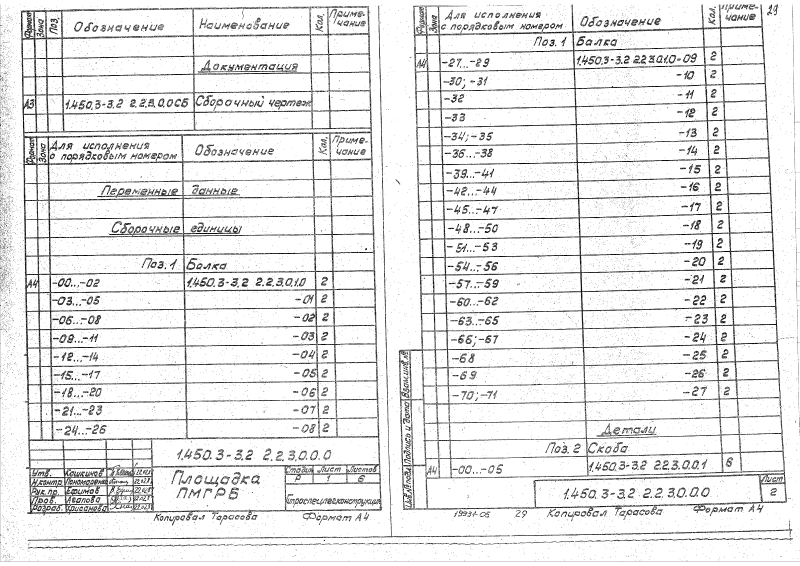 Формат Зона Поз. Обозначение Наименование Кол. Приме-чание
Документация
А3 1.450.3-3.2 2.2.3.0.0СБ Сборочный чертеж
Формат Зона Для исполнения с порядковым номером Обозначение Кол. Приме-чание
Переменные данные
Сборочные единицы
Поз. 1 Балка
А4 -00...-02 1.450.3-3.2 2.2.3.0.1.0 2
-03...-05 -01 2
-06...-08 -02 2
-09...-11 -03 2
-12...-14 -04 2
-15...-17 -05 2
-18...-20 -06 2
-21...-23 -07 2
-24...-26 -08 2
1.450.3-3.2 2.2.3.0.0.0
Утв. Кошкинов
Н.контр. Пономаренко
Рук.пр. Ефимов
Пров. Агапова
Разраб. Хрисанова
Площадка
ПМГРБ
Стадия Лист Листов
Р 1 6
Копировал Тарасова Формат А4
29
Формат Зона Для исполнения с порядковым номером Обозначение Кол. Приме-чание
Поз. 1 Балка
А4 -27...-29 1.450.3-3.2 2.2.3.0.1.0-09 2
-30; -31 -10 2
-32 -11 2
-33 -12 2
-34; -35 -13 2
-36...-38 -14 2
-39...-41 -15 2
-42...-44 -16 2
-45...-47 -17 2
-48...-50 -18 2
-51...-53 -19 2
-54...-56 -20 2
-57...-59 -21 2
-60...-62 -22 2
-63...-65 -23 2
-66; -67 -24 2
-68 -25 2
-69 -26 2
-70; -71 -27 2
Детали
Поз. 2 Скоба
А4 -00...-05 1.450.3-3.2 2.2.3.0.0.1 6
Инв.№подл. Подпись и дата Взам.инв.№
1.450.3-3.2 2.2.3.0.0.0
Лист
2
19931-05 29 Копировал Тарасова Формат А4